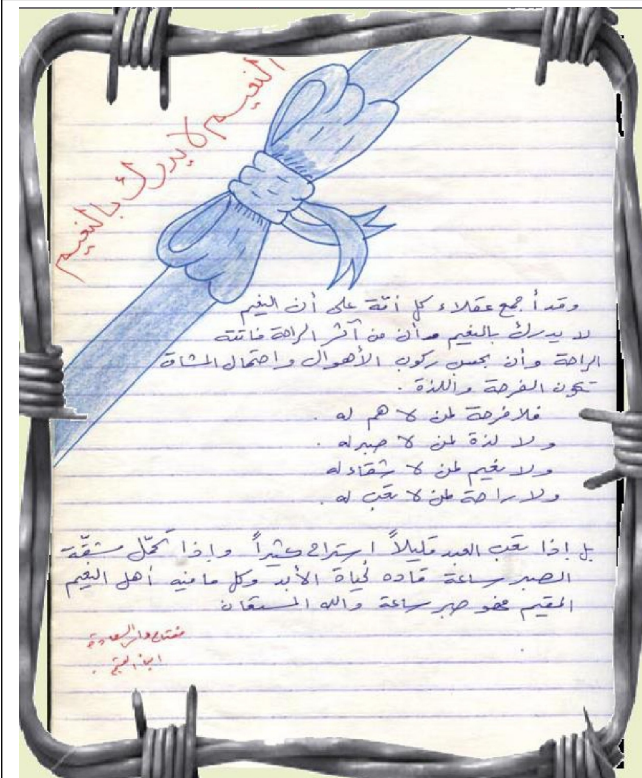 النعيم لا يدرك بالنعيم
وقد أجمع عقلاء كل أمّة على أن النعيم
لا يدرك بالنعيم وأن من آثر الراحة فاتته
الراحة وأن بحسب ركوب الأهوال واحتمال المشاق
تكون الفرحة واللذة .
فلا فرحة لمن لا هم له .
ولا لذة لمن لا صبر له .
ولا نعيم لمن لا شقاء له
ولا راحة لمن لا تعب له .
بل إذا تعب العبد قليلاً استراح كثيراً وإذا تحمّل مشقّة
الصبر ساعة قاده لحياة الأبد وكل ما فيه أهل النعيم
المقيم فهو صبر ساعة والله المستعان
مفتاح دار السعادة
ابن القيم .